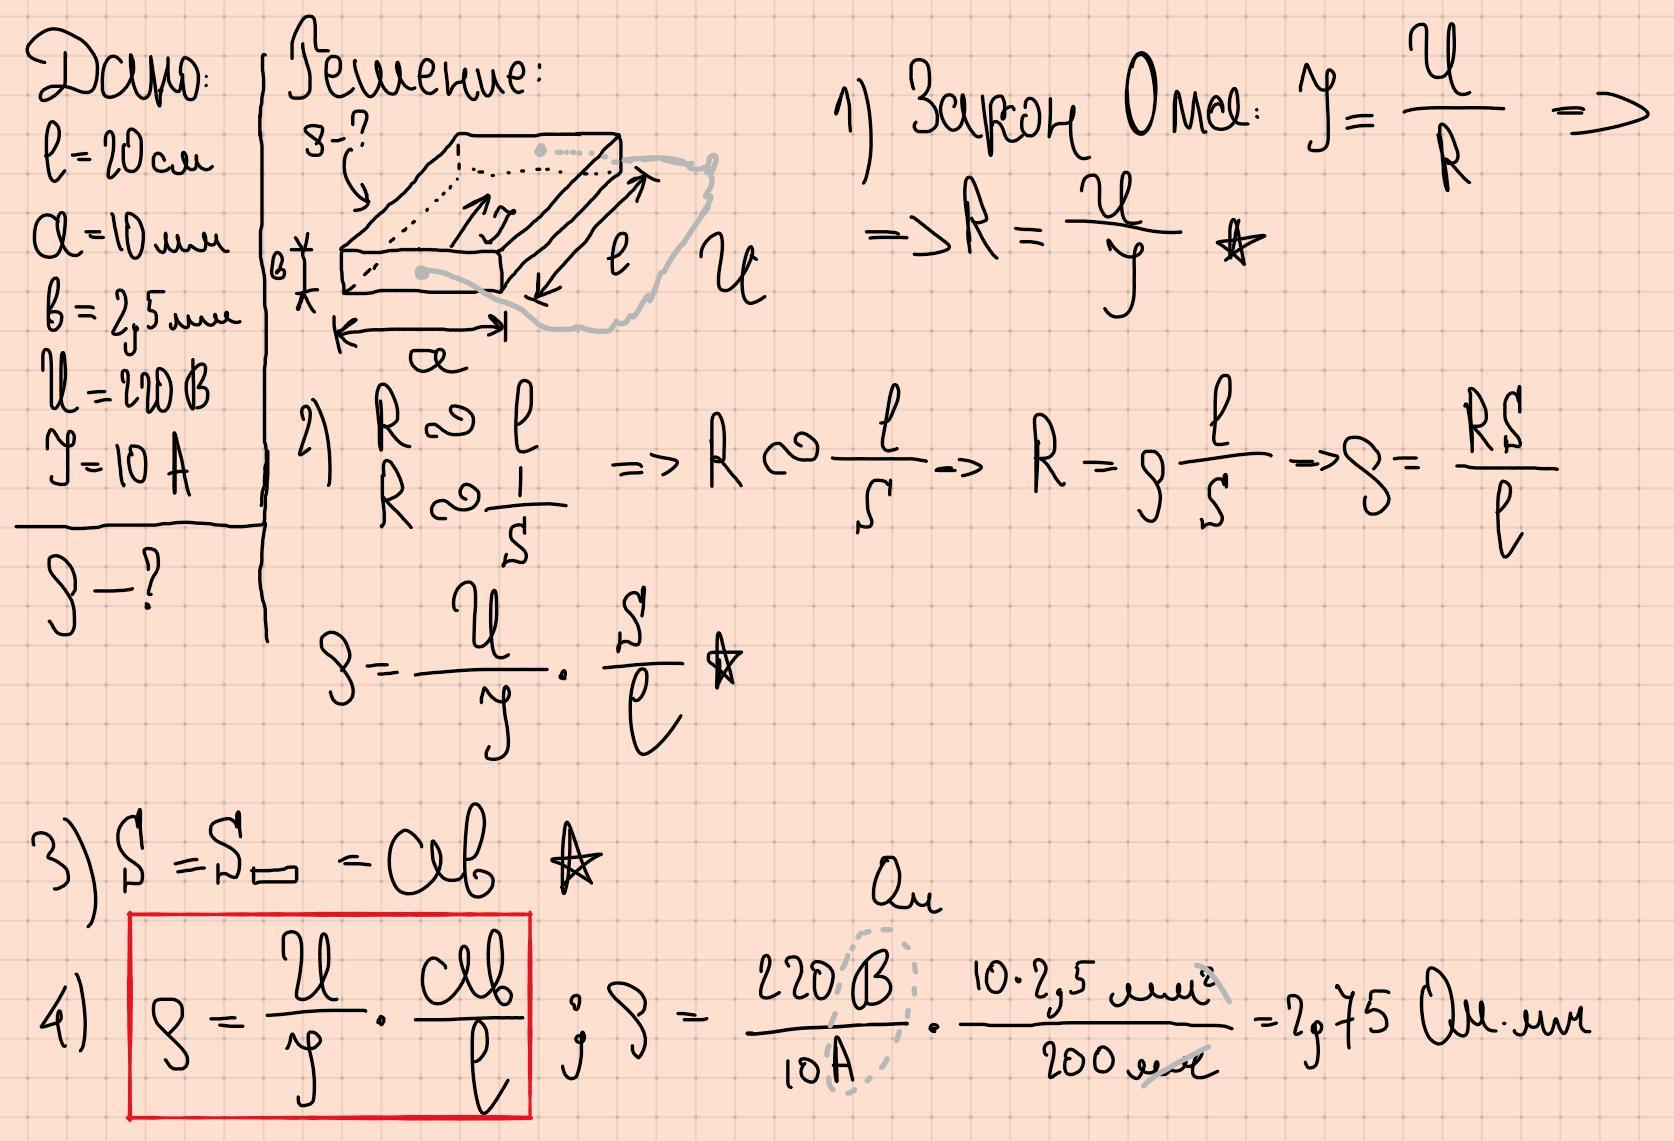 Дано:
l = 20 см
a = 10 мм
b = 2,5 мм
U = 220 В
I = 10 А
ρ — ?
Решение:
ρ — ?
I
b
l
U
a
1) Закон Ома: I = U/R =>
=> R = U/I ☆
2) R ∾ l
R ∾ 1/S
=> R ∾ l/S -> R = ρ l/S -> ρ = RS/l
ρ = U/I · S/l ☆
3) S = S▭ = ab ☆
Ом
4) ρ = U/I · ab/l ; ρ = 220 В/10 А · 10·2,5 мм²/200 мм = 2,75 Ом·мм